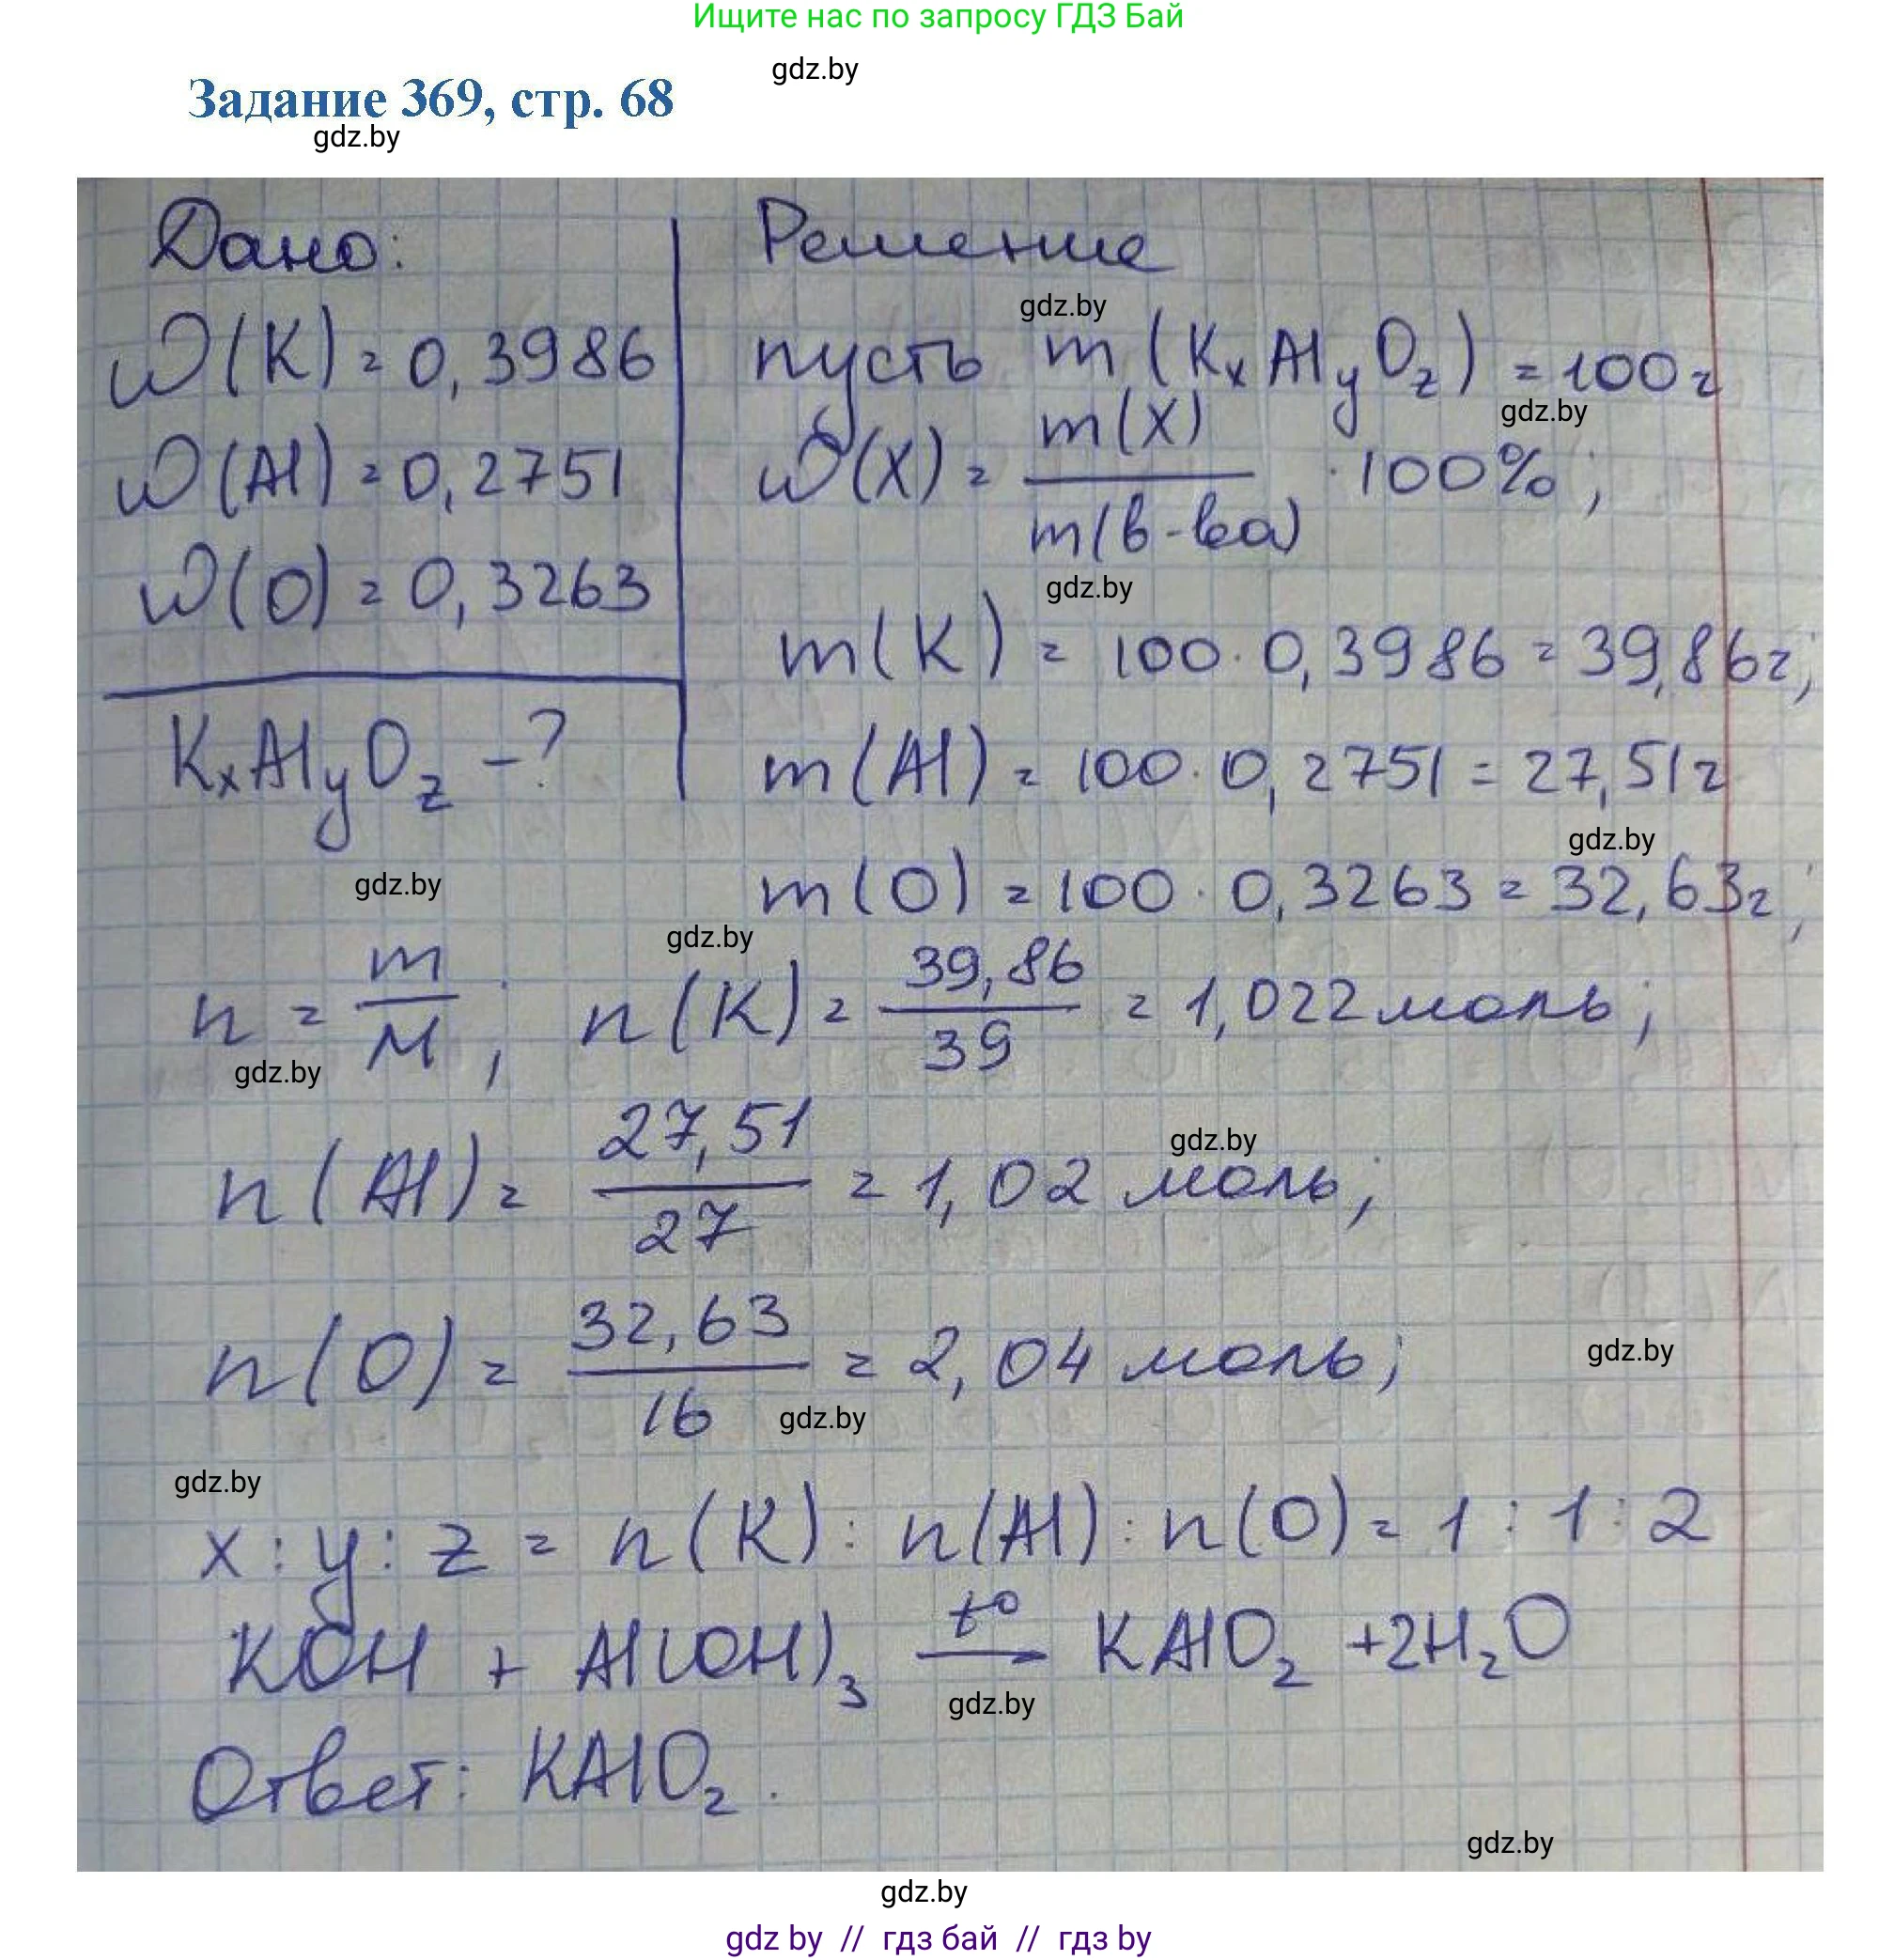 Ищите нас по запросу ГДЗ Бай
gdz.by
Задание 369, стр. 68
gdz.by
Дано:
ω(K) = 0,3986
ω(Al) = 0,2751
ω(O) = 0,3263
KxAlyOz - ?
gdz.by
Решение
gdz.by
пусть m (KxAlyOz) = 100 г
gdz.by
ω(X) = m(X) / m(в-ва) · 100% ;
gdz.by
m(K) = 100 · 0,3986 = 39,86 г;
m(Al) = 100 · 0,2751 = 27,51 г
gdz.by
m(O) = 100 · 0,3263 = 32,63 г;
gdz.by
n = m / M ; n(K) = 39,86 / 39 = 1,022 моль;
gdz.by
gdz.by
n(Al) = 27,51 / 27 = 1,02 моль;
n(O) = 32,63 / 16 = 2,04 моль;
gdz.by
gdz.by
gdz.by
x : y : z = n(K) : n(Al) : n(O) = 1 : 1 : 2
KOH + Al(OH)₃ t° → KAlO₂ + 2H₂O
gdz.by
Ответ: KAlO₂.
gdz.by
gdz.by
gdz by // гдз бай // гдз by